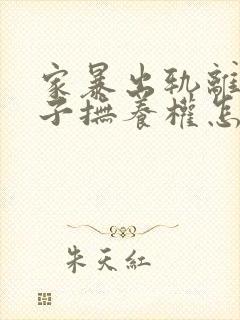 家暴出轨離
子撫養權怎
朱天紅